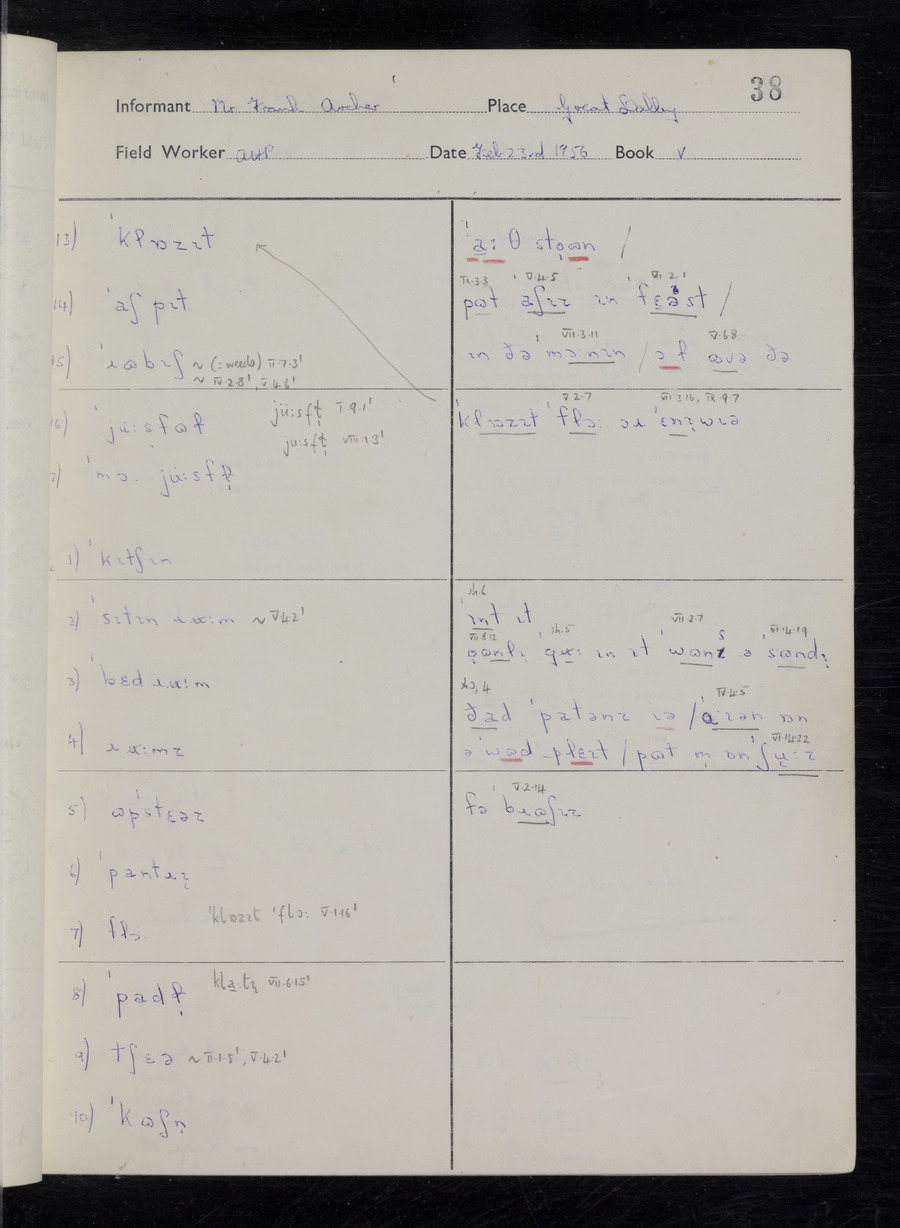 38
Informant Mr Frank Archer Place Great Dalby
Field Worker AWP Date Feb 23rd 1956 Book V
13) ˈklɒzɪt
14) ˈaʃ pɪt
15) ˈɹɷbɪʃ ~ (= weeds) II·7·3'
~ IV·2·8', V·4·6'
6) ˈjü:sfɷɫ jü:sfɫ̩ I·9·1'
ju:sfɫ̩ VIII·1·3'
7) ˈmɔ: jü:sfɫ̩
1) ˈkɪtʃɪn
2) ˈsɪtɪn ɹʉ:m ~ V·4·2'
3) ˈbɛdɹʉ:m
4) ɹʉ:mz
5) ɷpˈstɛəz
6) ˈpantɹɪ̞
7) flɔ: ˈklɒzɪt ˈflɔ: V·1·16'
8) ˈpadɫ̩ kla̠:tɪ̞ VII·6·15'
9) tʃɛə ~ II·1·5', V·4·2'
10) ˈkɷʃn̩
ˈa̠: θ sto̞ɷn /
IX·3·3 V·4·5 VI·2·1
pɷt ˈaʃɪz ɪn ˈfɛəst /
VII·3·11 V·6·8
ɪn ðə ˈmɔ:nɪn / ɔɫ ɷvə ðə
V·2·7 VII·3·16, IX·9·7
ˈklɒzɪt ˈflɔ: ɔɹ ˈɛnɪ̞wɪə
sh.6
ˈɪnt ɪt
VII·8·12 sh.5 VII·2·7 VI·14·19
o̞ɷnlɪ̞ ˈgʉ: ɪn ɪt ˈwɷns ə ˈsɷndɪ̞
sh3, 4 IV·4·5
ðad ˈpatənz ɪə / ˈaɪən ɒn
VI·14·22
ə ˈwɷd plɛɪt / pɷt m̩ ɒn ˈʃʉ:z
V·2·14
fə ˈbɹɷʃɪz